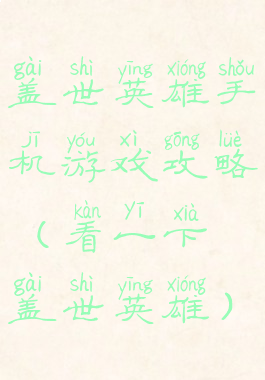 gài shì yīng xióng shǒu
盖世英雄手
jī yóu xì gōng lüè
机游戏攻略
kàn yī xià
(看一下
gài shì yīng xióng
盖世英雄)